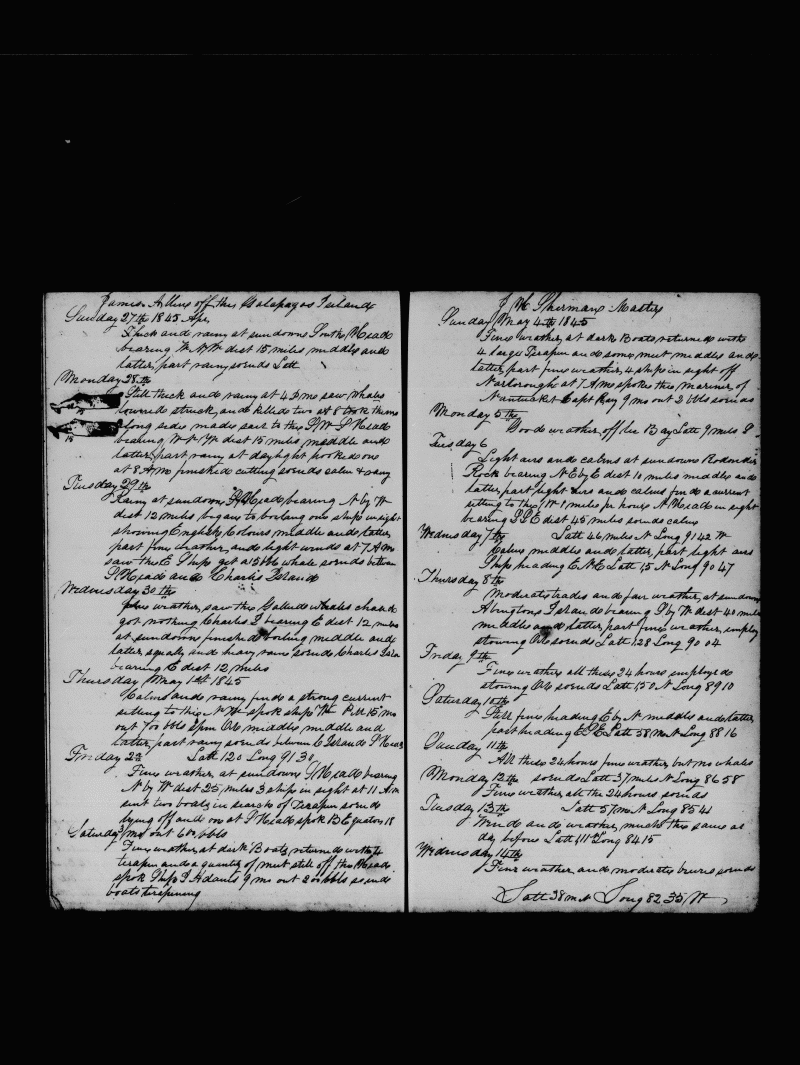 James Allen off the Galapagos Islands
Sunday 27th 1845 Apr
Thick and rainy at sundown South Head
bearing W N W dist 15 miles middle and
latter part rainy so ends Latt
Monday 28th
Still thick and rainy at 4 P M saw whales
lowered struck and killed two at 8 took them
along side made sail to the S W S Head
bearing W N W dist 15 miles middle and
latter part rainy at daylight hooked on
at 8 A M finished cutting so ends calm & rainy
Tuesday 29th
Rainy at sundown S Head bearing N by W
dist 12 miles began to boiling one ship in sight
showing English Colours middle and latter
part fine weather and light winds at 7 A M
saw the E Ship get a 15 bbl whale so ends between
S Head and Charles Island
Wednesday 30th
fine weather, saw the whales chased
got nothing Charles I bearing E dist 12 miles
at sundown finished boiling middle and
latter squally and heavy rains so ends Charles
bearing E dist 12 miles
Thursday May 1st 1845
Calms and rainy find a strong current
setting to the N W spoke ship 15 mo
out 700 bbls Spm Oil middle and
latter part rainy so ends between C Island S Head
Friday 2d Latt 120 Long 91 30
Fine weather, at sundown S Head bearing
N by W dist 25 miles 3 ship in sight at 11 A M
sent two boats in search of Terapin so ends
lying off and on at S Head spok Equator 18
Saturday 3 mo out 600 bbls
Fine weather at dark Boats returned with 4
terapin and a quantity of meet still off the Head
spok Ship J Adams 9 mo out 200 bbls so ends
boats terepening
J W Sherman Master
Sunday May 4th 1845
Fine weather, at dark Boats returned with
4 large Terapin and some meet middle and
latter part fine weather, 4 ship in sight off
Narborough at 7 A M spoke the Mariner of
Nantucket Capt Ray 9 mo out 2 bbls so ends
Monday 5th
Good weather off the Bay Latt 9 miles S
Tuesday 6
Light airs and calms at sundown Rodondo
Rock bearing N E by E dist 10 miles middle and
latter part light airs and calms find a current
setting to the W 1 miles pr hour N Head in sight
bearing S S E dist 45 miles so ends calm
Wednesday 7th Latt 46 miles N Long 91 42 W
Calm middle and latter part light airs
Ship heading E N E Latt 15 N Long 90 47
Thursday 8th
Moderate trades and fair weather, at sundown
Abingtons Island bearing S by W dist 40 miles
middle and latter part fine weather, employ
stowing Oil so ends Latt 1 28 Long 90 04
Friday 9th
Fine weather all these 24 hours employed
stowing Oil so ends Latt 1 50 N Long 89 10
Saturday 10th
Still fine heading E by N middle and latter
part heading E S E Latt 58 m N Long 88 16
Sunday 11th
All these 24 hours fine weather but no whales
Monday 12th so ends Latt 37 miles N Long 86 58
Fine weather all the 24 hours so ends
Tuesday 13th Latt 57 m N Long 85 41
Wind and weather, much the same as
day before Latt Long 84 15
Wednesday 14th
Fine weather, and moderate breeze so ends
Latt 38 m N Long 82 35 W